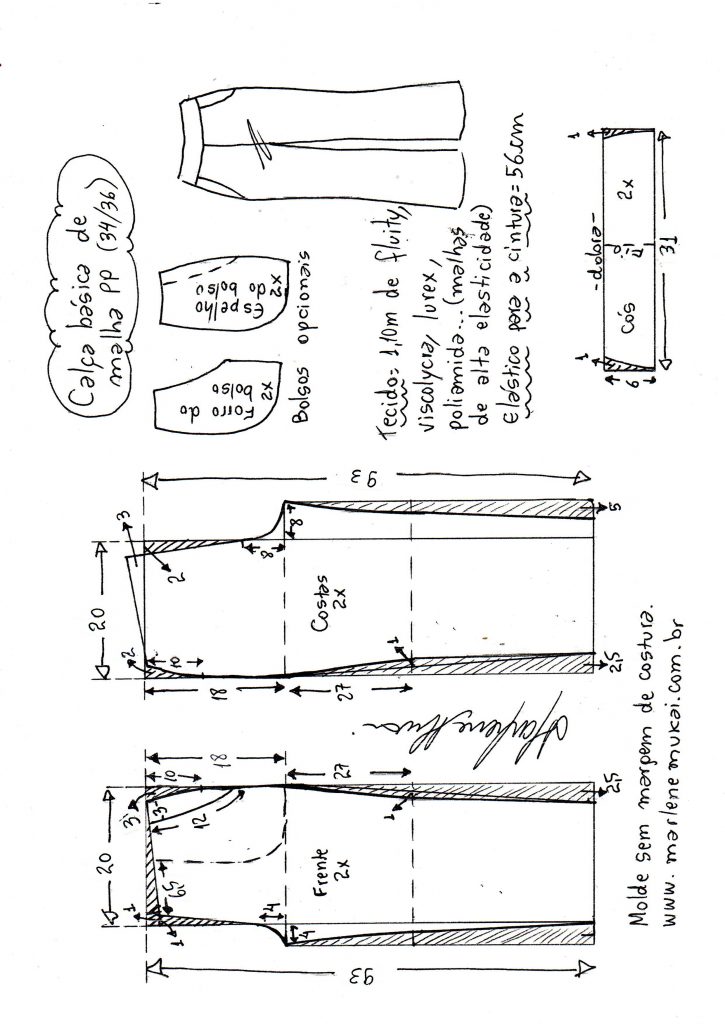 Calça básica de
malha PP (34/36)
Forro do
bolso
2x
Espelho
do bolso
2x
Bolsos opcionais
Tecido= 1,10m de fluity,
viscolycra, lurex,
poliamida... (malhas
de alta elasticidade)
Elástico para a cintura= 56cm
93
20
1
1
6,5
3
3
12
10
18
27
1
4
4
Frente
2x
2,5
20
2
10
18
27
1
2
3
8
8
93
Costas
2x
2,5
5
-dobra-
1
1
cós
2x
6
31
Molde sem margem de costura.
www.marlenemukai.com.br